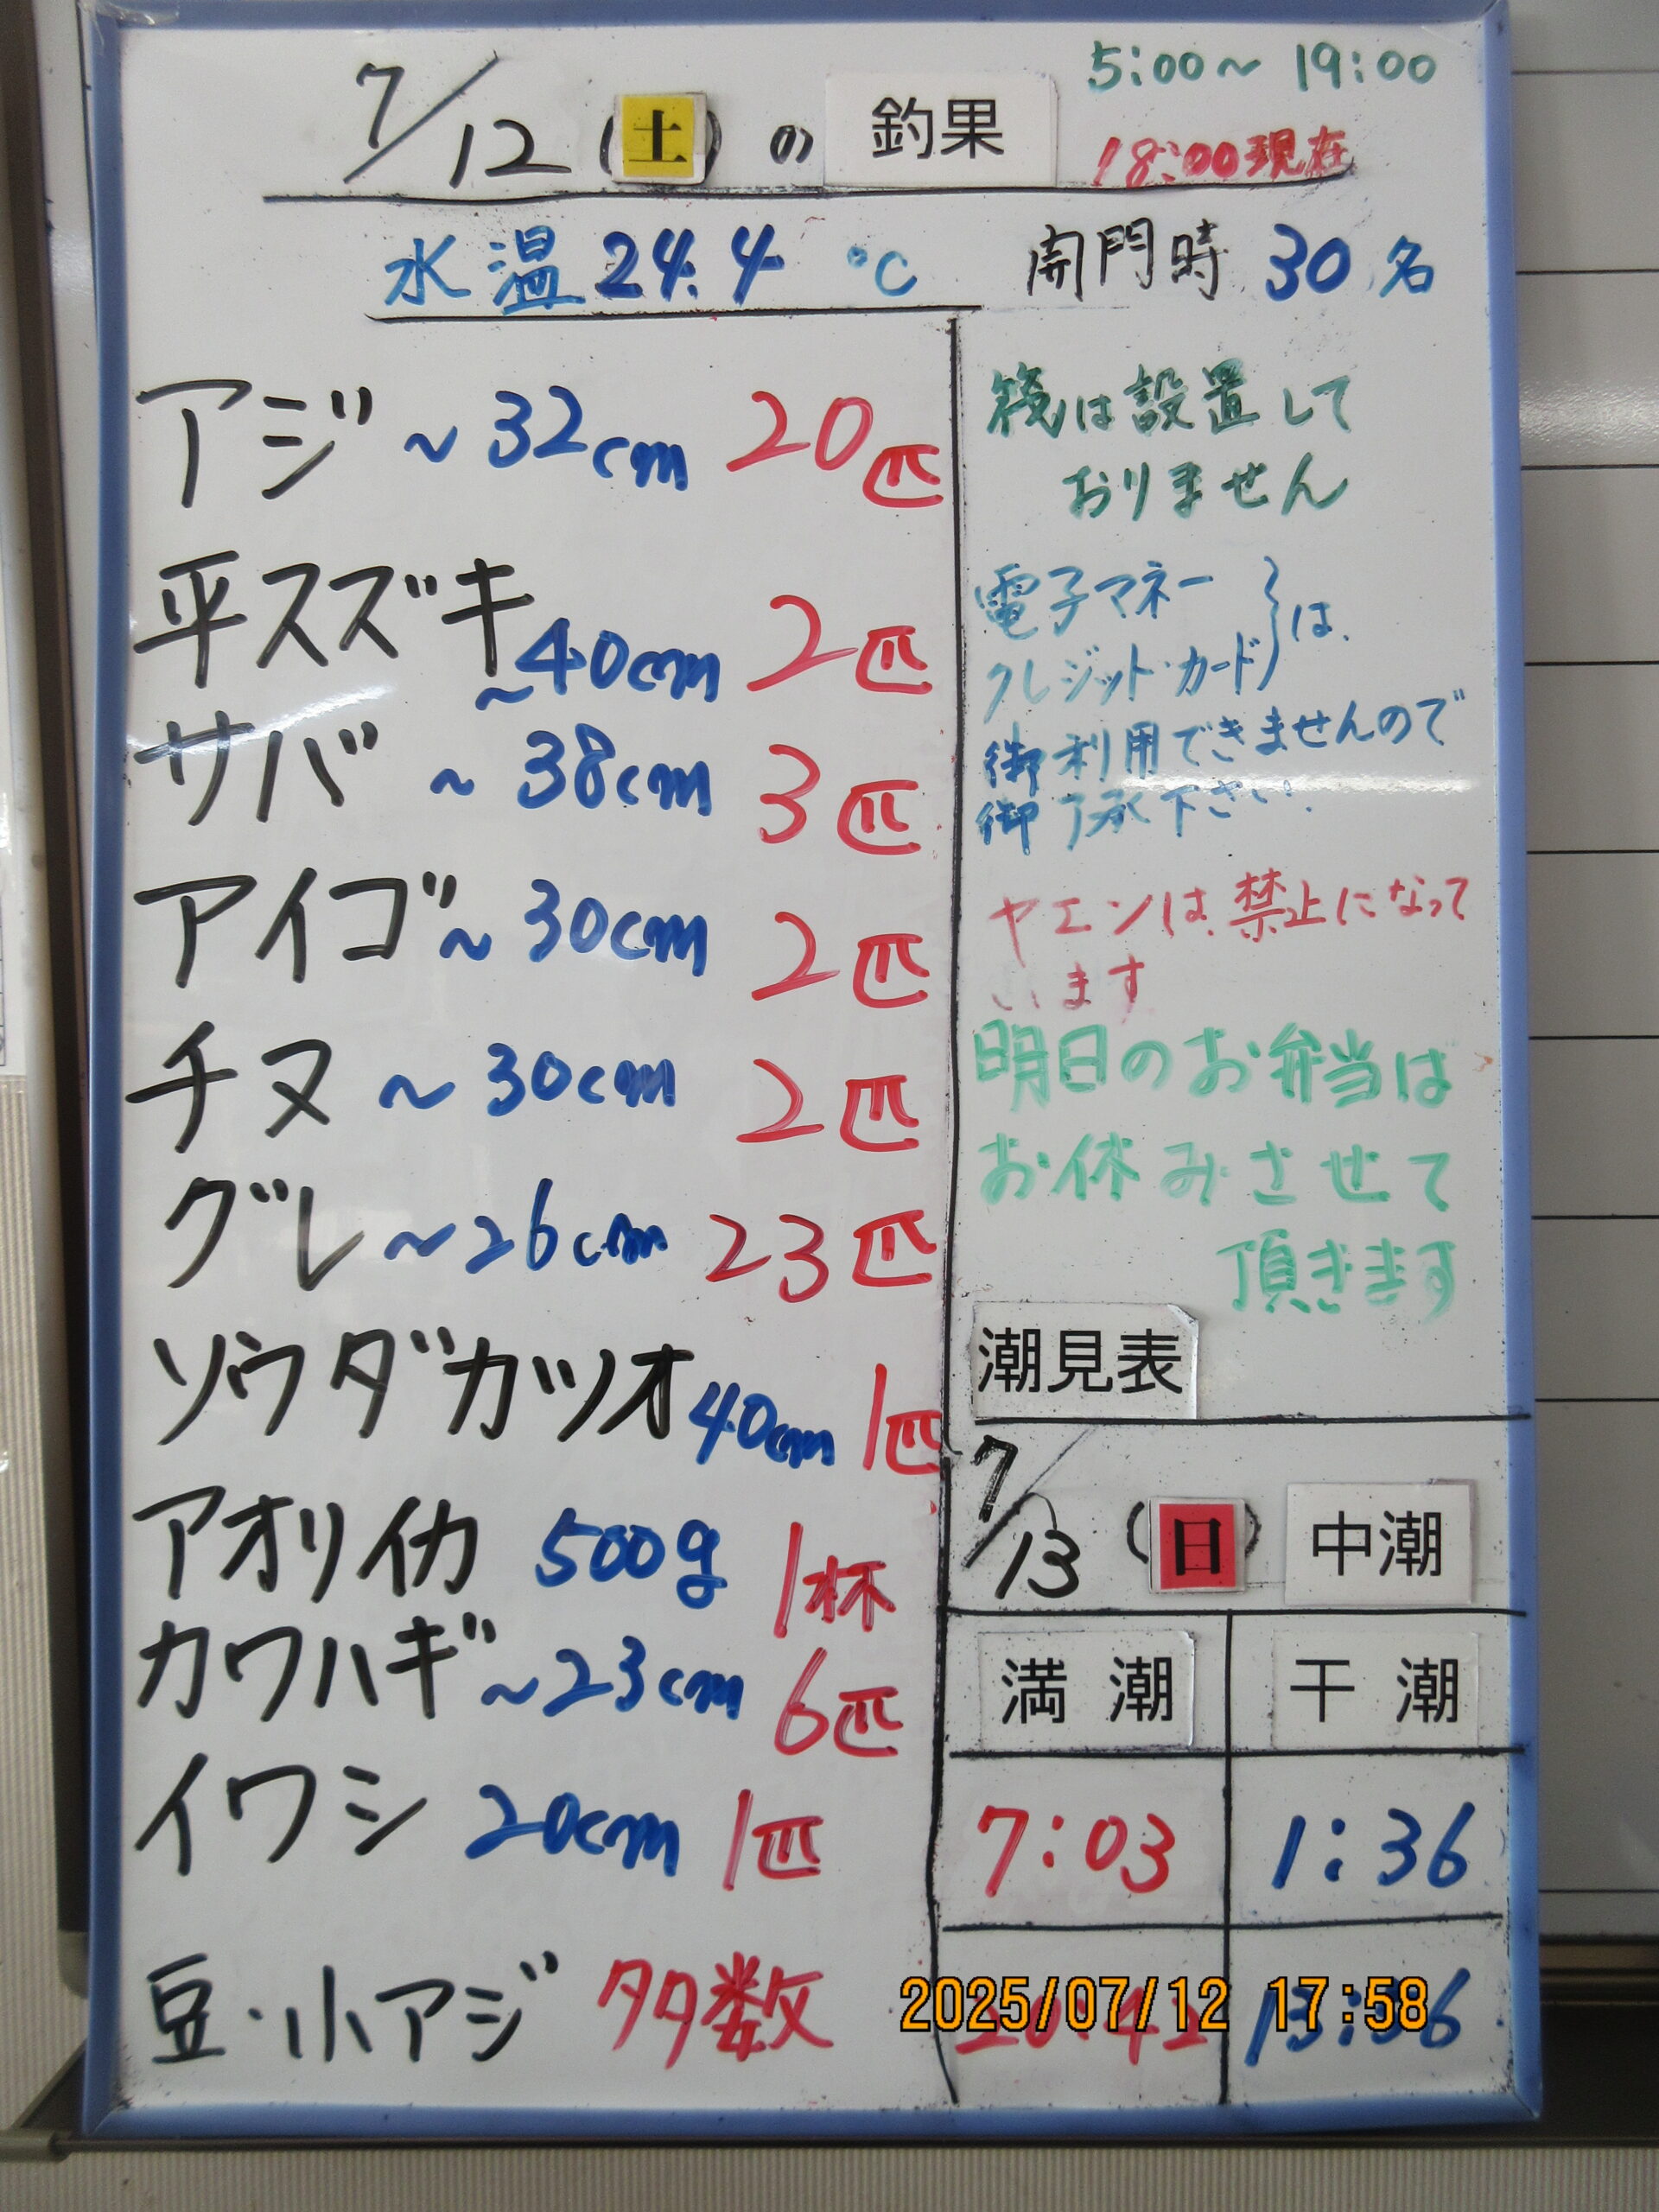 7/12(土)の釣果
5:00～19:00
18:00現在
水温24.4℃
開門時30名
アジ～32cm 20匹
平スズキ～40cm 2匹
サバ～38cm 3匹
アイゴ～30cm 2匹
チヌ～30cm 2匹
グレ～26cm 23匹
ソウダガツオ40cm 1匹
アオリイカ 500g 1杯
カワハギ～23cm 6匹
イワシ 20cm 1匹
豆・小アジ 多数
筏は設置して
おりません
電子マネー
クレジット・カード}は、
御利用できませんので
御了承下さい。
ヤエンは、禁止になって
います
明日のお弁当は
お休みさせて
頂きます
潮見表
7/13(日) 中潮
満潮 干潮
7:03 1:36
2025/07/12 17:58